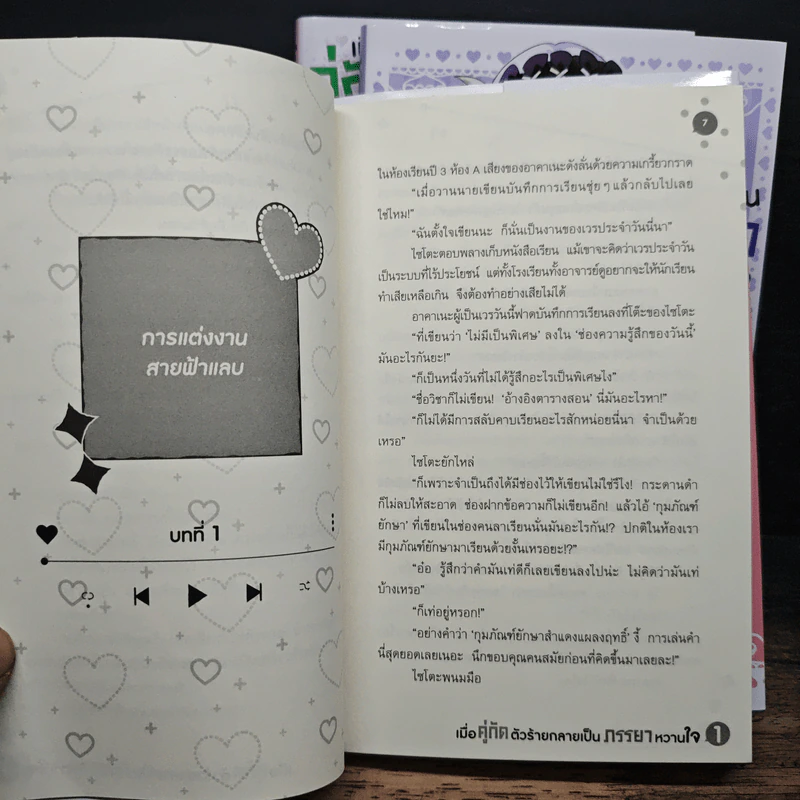 การแต่งงาน
สายฟ้าแลบ
บทที่ 1
7
ในห้องเรียนปี 3 ห้อง A เสียงของอาคาเนะดังลั่นด้วยความเกรี้ยวกราด
“เมื่อวานนายเขียนบันทึกการเรียนชุ่ย ๆ แล้วกลับไปเลย
ใช่ไหม!”
“ฉันตั้งใจเขียนนะ ก็นั่นเป็นงานของเวรประจำวันนี่นา”
ไซโตะตอบพลางเก็บหนังสือเรียน แม้เขาจะคิดว่าเวรประจำวัน
เป็นระบบที่ไร้ประโยชน์ แต่ทั้งโรงเรียนทั้งอาจารย์ดูอยากจะให้นักเรียน
ทำเสียเหลือเกิน จึงต้องทำอย่างเสียไม่ได้
อาคาเนะผู้เป็นเวรวันนี้ฟาดบันทึกการเรียนลงที่โต๊ะของไซโตะ
“ที่เขียนว่า ‘ไม่มีเป็นพิเศษ’ ลงใน ‘ช่องความรู้สึกของวันนี้’
มันอะไรกันยะ!”
“ก็เป็นหนึ่งวันที่ไม่ได้รู้สึกอะไรเป็นพิเศษไง”
“ชื่อวิชาก็ไม่เขียน! ‘อ้างอิงตารางสอน’ นี่มันอะไรหา!”
“ก็ไม่ได้มีการสลับคาบเรียนอะไรสักหน่อยนี่นา จำเป็นด้วย
เหรอ”
ไซโตะยักไหล่
“ก็เพราะจำเป็นถึงได้มีช่องไว้ให้เขียนไม่ใช่รึไง! กระดานดำ
ก็ไม่ลบให้สะอาด ช่องฝากข้อความก็ไม่เขียนอีก! แล้วไอ้ ‘กุมภัณฑ์
ยักษา’ ที่เขียนในช่องคนลาเรียนนั่นมันอะไรกัน!? ปกติในห้องเรา
มีกุมภัณฑ์ยักษามาเรียนด้วยงั้นเหรอยะ!?”
“อ๋อ รู้สึกว่าคำมันเท่ดีก็เลยเขียนลงไปน่ะ ไม่คิดว่ามันเท่
บ้างเหรอ”
“ก็เท่อยู่หรอก!”
“อย่างคำว่า ‘กุมภัณฑ์ยักษาสำแดงแผลงฤทธิ์’ งี้ การเล่นคำ
นี่สุดยอดเลยเนอะ นึกขอบคุณคนสมัยก่อนที่คิดขึ้นมาเลยละ!”
ไซโตะพนมมือ
เมื่อคู่กัดตัวร้ายกลายเป็นภรรยาหวานใจ 1